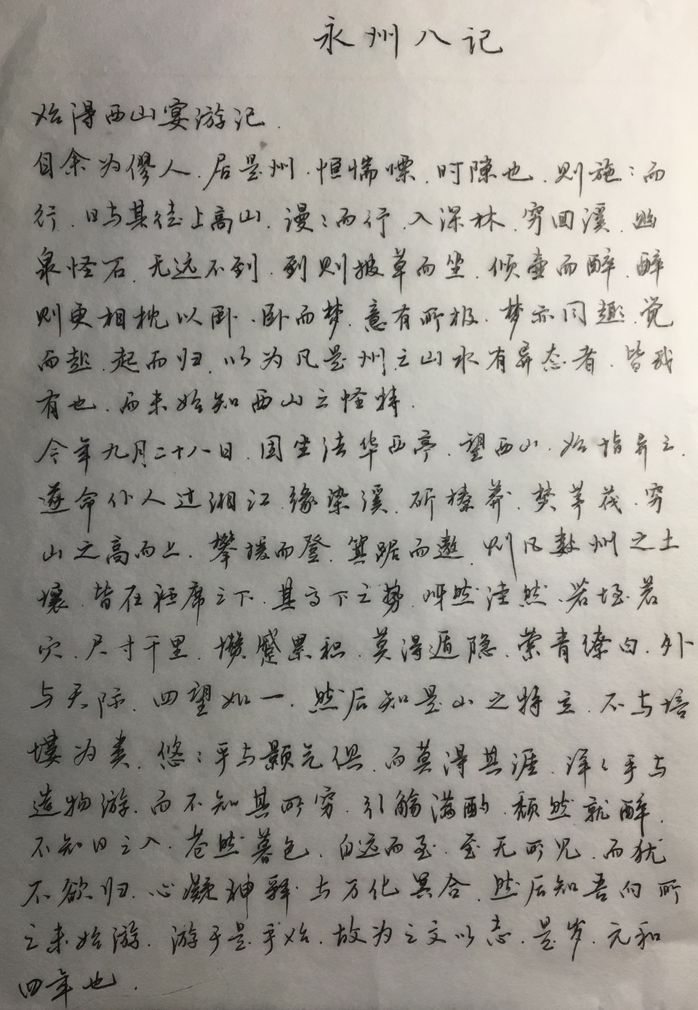 永州八记
始得西山宴游记.
自余为僇人.居是州.恒惴慄.时隙也.则施:而
行.日与其徒上高山.漫:而行.入深林.穷回溪.幽
泉怪石.无远不到.到则披草而坐.倾壶而醉.醉
则更相枕以卧.卧而梦.意有所极.梦亦同趣.觉
而起.起而归.以为凡是州之山水有异态者.皆我
有也.而未始知西山之怪特.
今年九月二十八日.因坐法华西亭.望西山.始指异之.
遂命仆人过湘江.缘染溪.斫榛莽.焚茅茷.穷
山之高而上.攀援而登.箕踞而遨.则凡数州之土
壤.皆在衽席之下.其高下之势.呀然洼然.若垤若
穴.尺寸千里.攒蹙累积.莫得遁隐.萦青缭白.外
与天际.四望如一.然后知是山之特立.不与培
塿为类.悠:乎与颢气俱.而莫得其涯.洋:乎与
造物游.而不知其所穷.引觞满酌.颓然就醉.
不知日之入.苍然暮色.自远而至.至无所见.而犹
不欲归.心凝神释.与万化冥合.然后知吾向所
之未始游.游于是乎始.故为之文以志.是岁.元和
四年也.